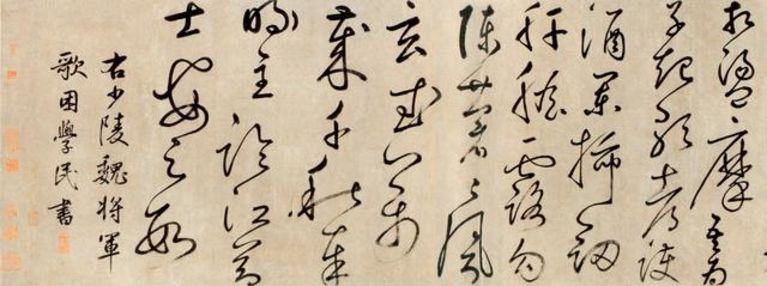 相盪摩吾為
子起歌都護
酒闌插劍
肝膽露勾
陳蒼〻風
玄武萬
歲千秋奉
明主臨江節
士安足數
右少陵魏將軍
歌困學民書